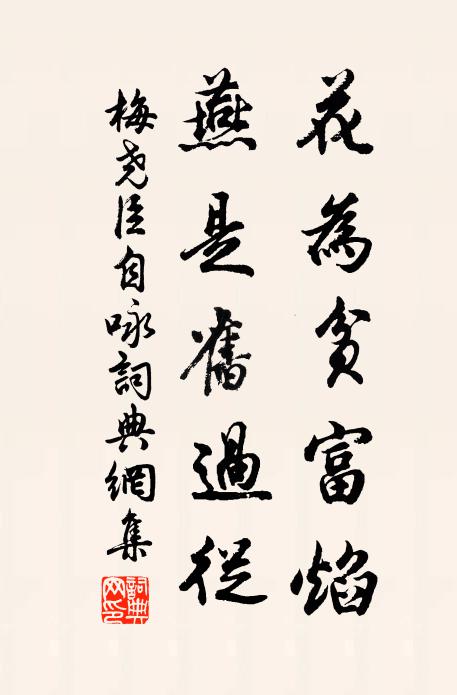 花為貧富焰
燕是舊過從
梅堯臣自咏詞典網集
詞典